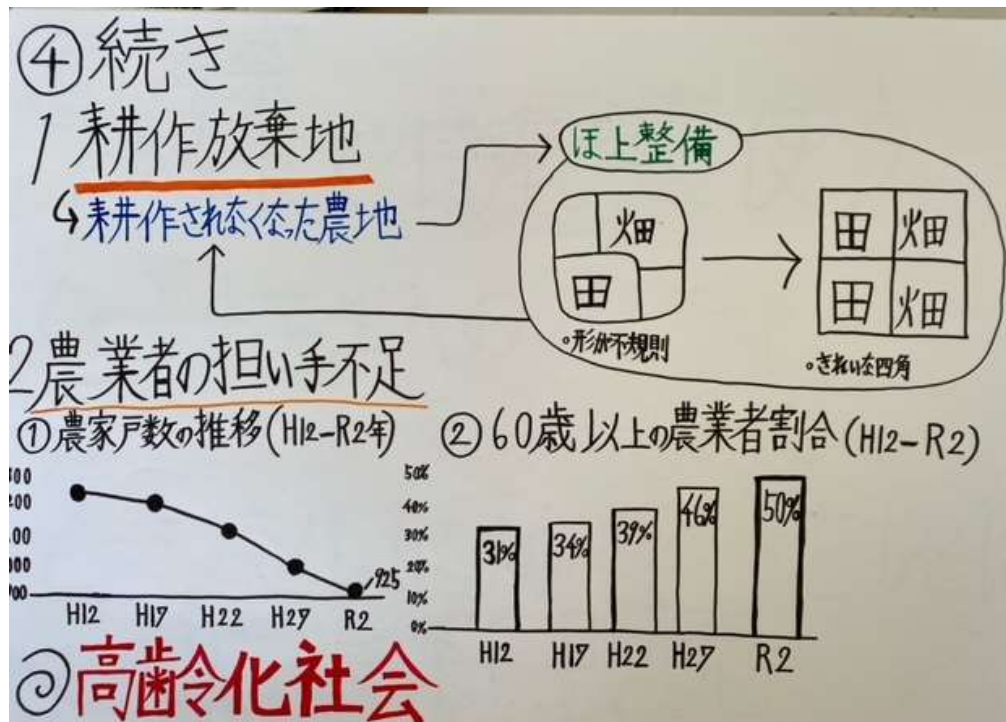 ④続き
1 耕作放棄地
↳耕作されなくなった農地
ほ上整備
畑
田
◦形が不規則
田 畑
田 畑
◦きれいな四角
2 農業者の担い手不足
①農家戸数の推移(H12-R2年)
925
H12 H17 H22 H27 R2
②60歳以上の農業者割合(H12-R2)
50%
40%
30%
20%
10%
0%
31% 34% 39% 46% 50%
H12 H17 H22 H27 R2
◎高齢化社会